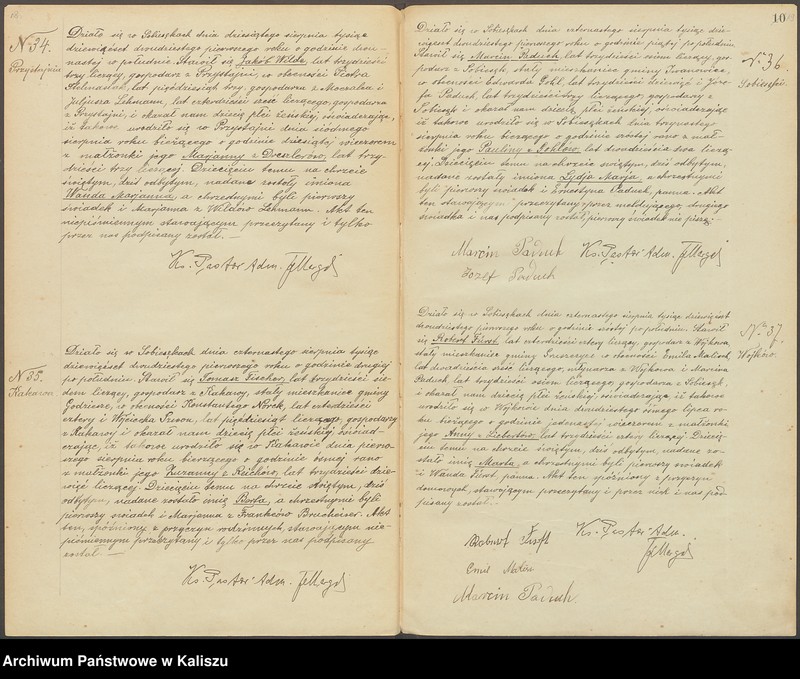 N 34.
Przystajnia
Działo się w Sobieszkach dnia dziesiątego sierpnia tysiąc
dziewięćset dwudziestego pierwszego roku o godzinie dwu-
nastej w południe. Stawił się Jakób Wilde, lat trzydzieści
trzy liczący, gospodarz z Przystajni, w obecności Piotra
lat pięćdziesiąt trzy, gospodarza z
Juljusza Lehmann, lat czterdzieści sześć liczącego, gospodarza
z Przystajni, i okazał nam dziecię płci żeńskiej, oświadczając,
iż takowe urodziło się w Przystajni dnia siódmego
sierpnia roku bieżącego o godzinie dziesiątej wieczorem
z małżonki jego Marjanny z Dreslerów, lat trzy-
dzieści trzy liczącej. Dziecięciu temu na chrzcie
świętym, dziś odbytym, nadane zostały imiona
Wanda Marjanna, a chrzestnymi byli pierwszy
świadek i Marjanna z Wildów Lehmann. Akt ten
niepiśmiennym stawającym przeczytany i tylko
przez nas podpisany został. —
Ks. Pastor Adm.
N 35.
Działo się w Sobieszkach dnia czternastego sierpnia tysiąc
dziewięćset dwudziestego pierwszego roku o godzinie drugiej
po południu. Stawił się Tomasz Fischer, lat trzydzieści sie-
dem liczący, gospodarz z stały mieszkaniec gminy
Godziesze, w obecności Konstantego lat czterdzieści
cztery i lat pięćdziesiąt liczących, gospodarzy
z i okazał nam dziecię płci żeńskiej oświad-
czając, iż takowe urodziło się w dnia pierw-
szego sierpnia roku bieżącego o godzinie ósmej rano
z małżonki jego Zuzanny z lat trzydzieści dzie-
więć liczącej. Dziecięciu temu na chrzcie świętym, dziś
odbytym, nadane zostało imię Berta, a chrzestnymi byli
pierwszy świadek i Marjanna z Franków Akt
ten, spóźniony z przyczyn rodzinnych, stawającym nie-
piśmiennym przeczytany i tylko przez nas podpisany
został. —
Ks. Pastor Adm.
10
Działo się w Sobieszkach dnia czternastego sierpnia tysiąc dzie-
więćset dwudziestego pierwszego roku o godzinie piątej po południu.
Stawił się Marcin Paduch, lat trzydzieści osiem liczący, gos-
podarz z Sobiesęk, stały mieszkaniec gminy Iwanowice,
w obecności Edwarda lat trzydzieści i Józe-
fa Paduch, lat trzydzieści trzy liczącego, gospodarzy z
Sobiesęk i okazał nam dziecię płci żeńskiej, oświadczając
iż takowe urodziło się w Sobieszkach dnia trzynastego
sierpnia roku bieżącego o godzinie szóstej rano z mał-
żonki jego Pauliny z lat dwadzieścia dwa liczą-
cej. Dziecięciu temu na chrzcie świętym, dziś odbytym,
nadane zostały imiona Lydja Marja, a chrzestnymi
byli pierwszy świadek i Ernestyna Paduch, panna. Akt
ten stawającym przeczytany, przez meldującego, drugiego
świadka i nas podpisany został, pierwszy świadek nie pisze.
N 36.
Marcin Paduch Ks. Pastor Adm.
Jozef Paduch
Działo się w Sobieszkach dnia czternastego sierpnia tysiąc dziewięćset
dwudziestego pierwszego roku o godzinie szóstej po południu. Stawił
się Robert Fürst, lat czterdzieści cztery liczący, gospodarz z Wójkowa,
stały mieszkaniec gminy w obecności Emila
lat dwadzieścia sześć liczącego, młynarza z Wójkowa i Marcina
Paduch, lat trzydzieści osiem liczącego, gospodarza z Sobiesęk,
i okazał nam dziecię płci żeńskiej, oświadczając iż takowe
urodziło się w Wójkowie dnia dwudziestego ósmego lipca ro-
ku bieżącego o godzinie jedenastej wieczorem z małżonki
jego Anny z lat trzydzieści cztery liczącej. Dziecię-
ciu temu na chrzcie świętym, dziś odbytym, nadane zo-
stało imię Marta, a chrzestnymi byli pierwszy świadek
i Wanda Fürst, panna. Akt ten spóźniony z przyczyn
domowych, stawającym przeczytany i przez nich i nas pod-
pisany został.
N 37.
Wójków.
Robert Ks. Pastor Adm.
Emil
Marcin Paduch.
Archiwum Państwowe w Kaliszu